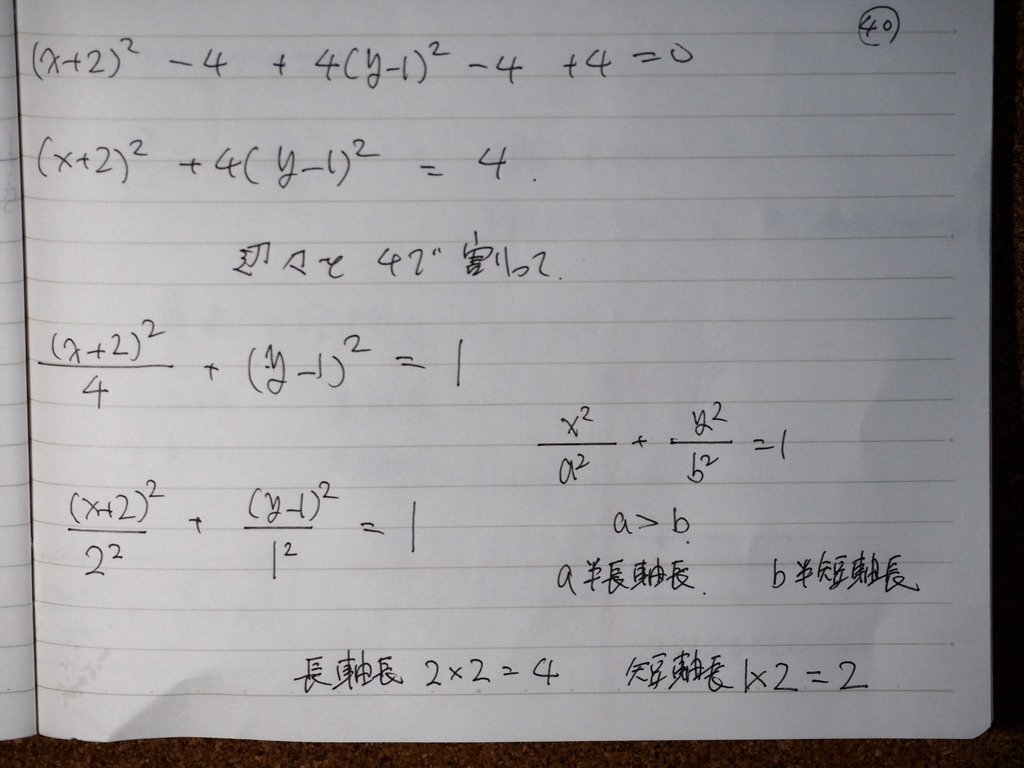 ㊵
(x+2)² - 4 + 4(y-1)² - 4 + 4 = 0
(x+2)² + 4(y-1)² = 4.
辺々を4で割って.
(x+2)²/4 + (y-1)² = 1
x²/a² + y²/b² = 1
(x+2)²/2² + (y-1)²/1² = 1
a > b.
a 半長軸長. b 半短軸長
長軸長 2×2=4 短軸長 1×2=2